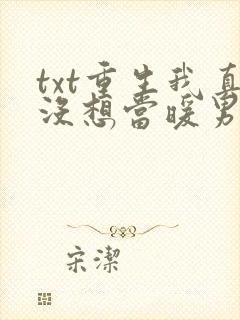 txt重生我真
没想当暖男
宋潔